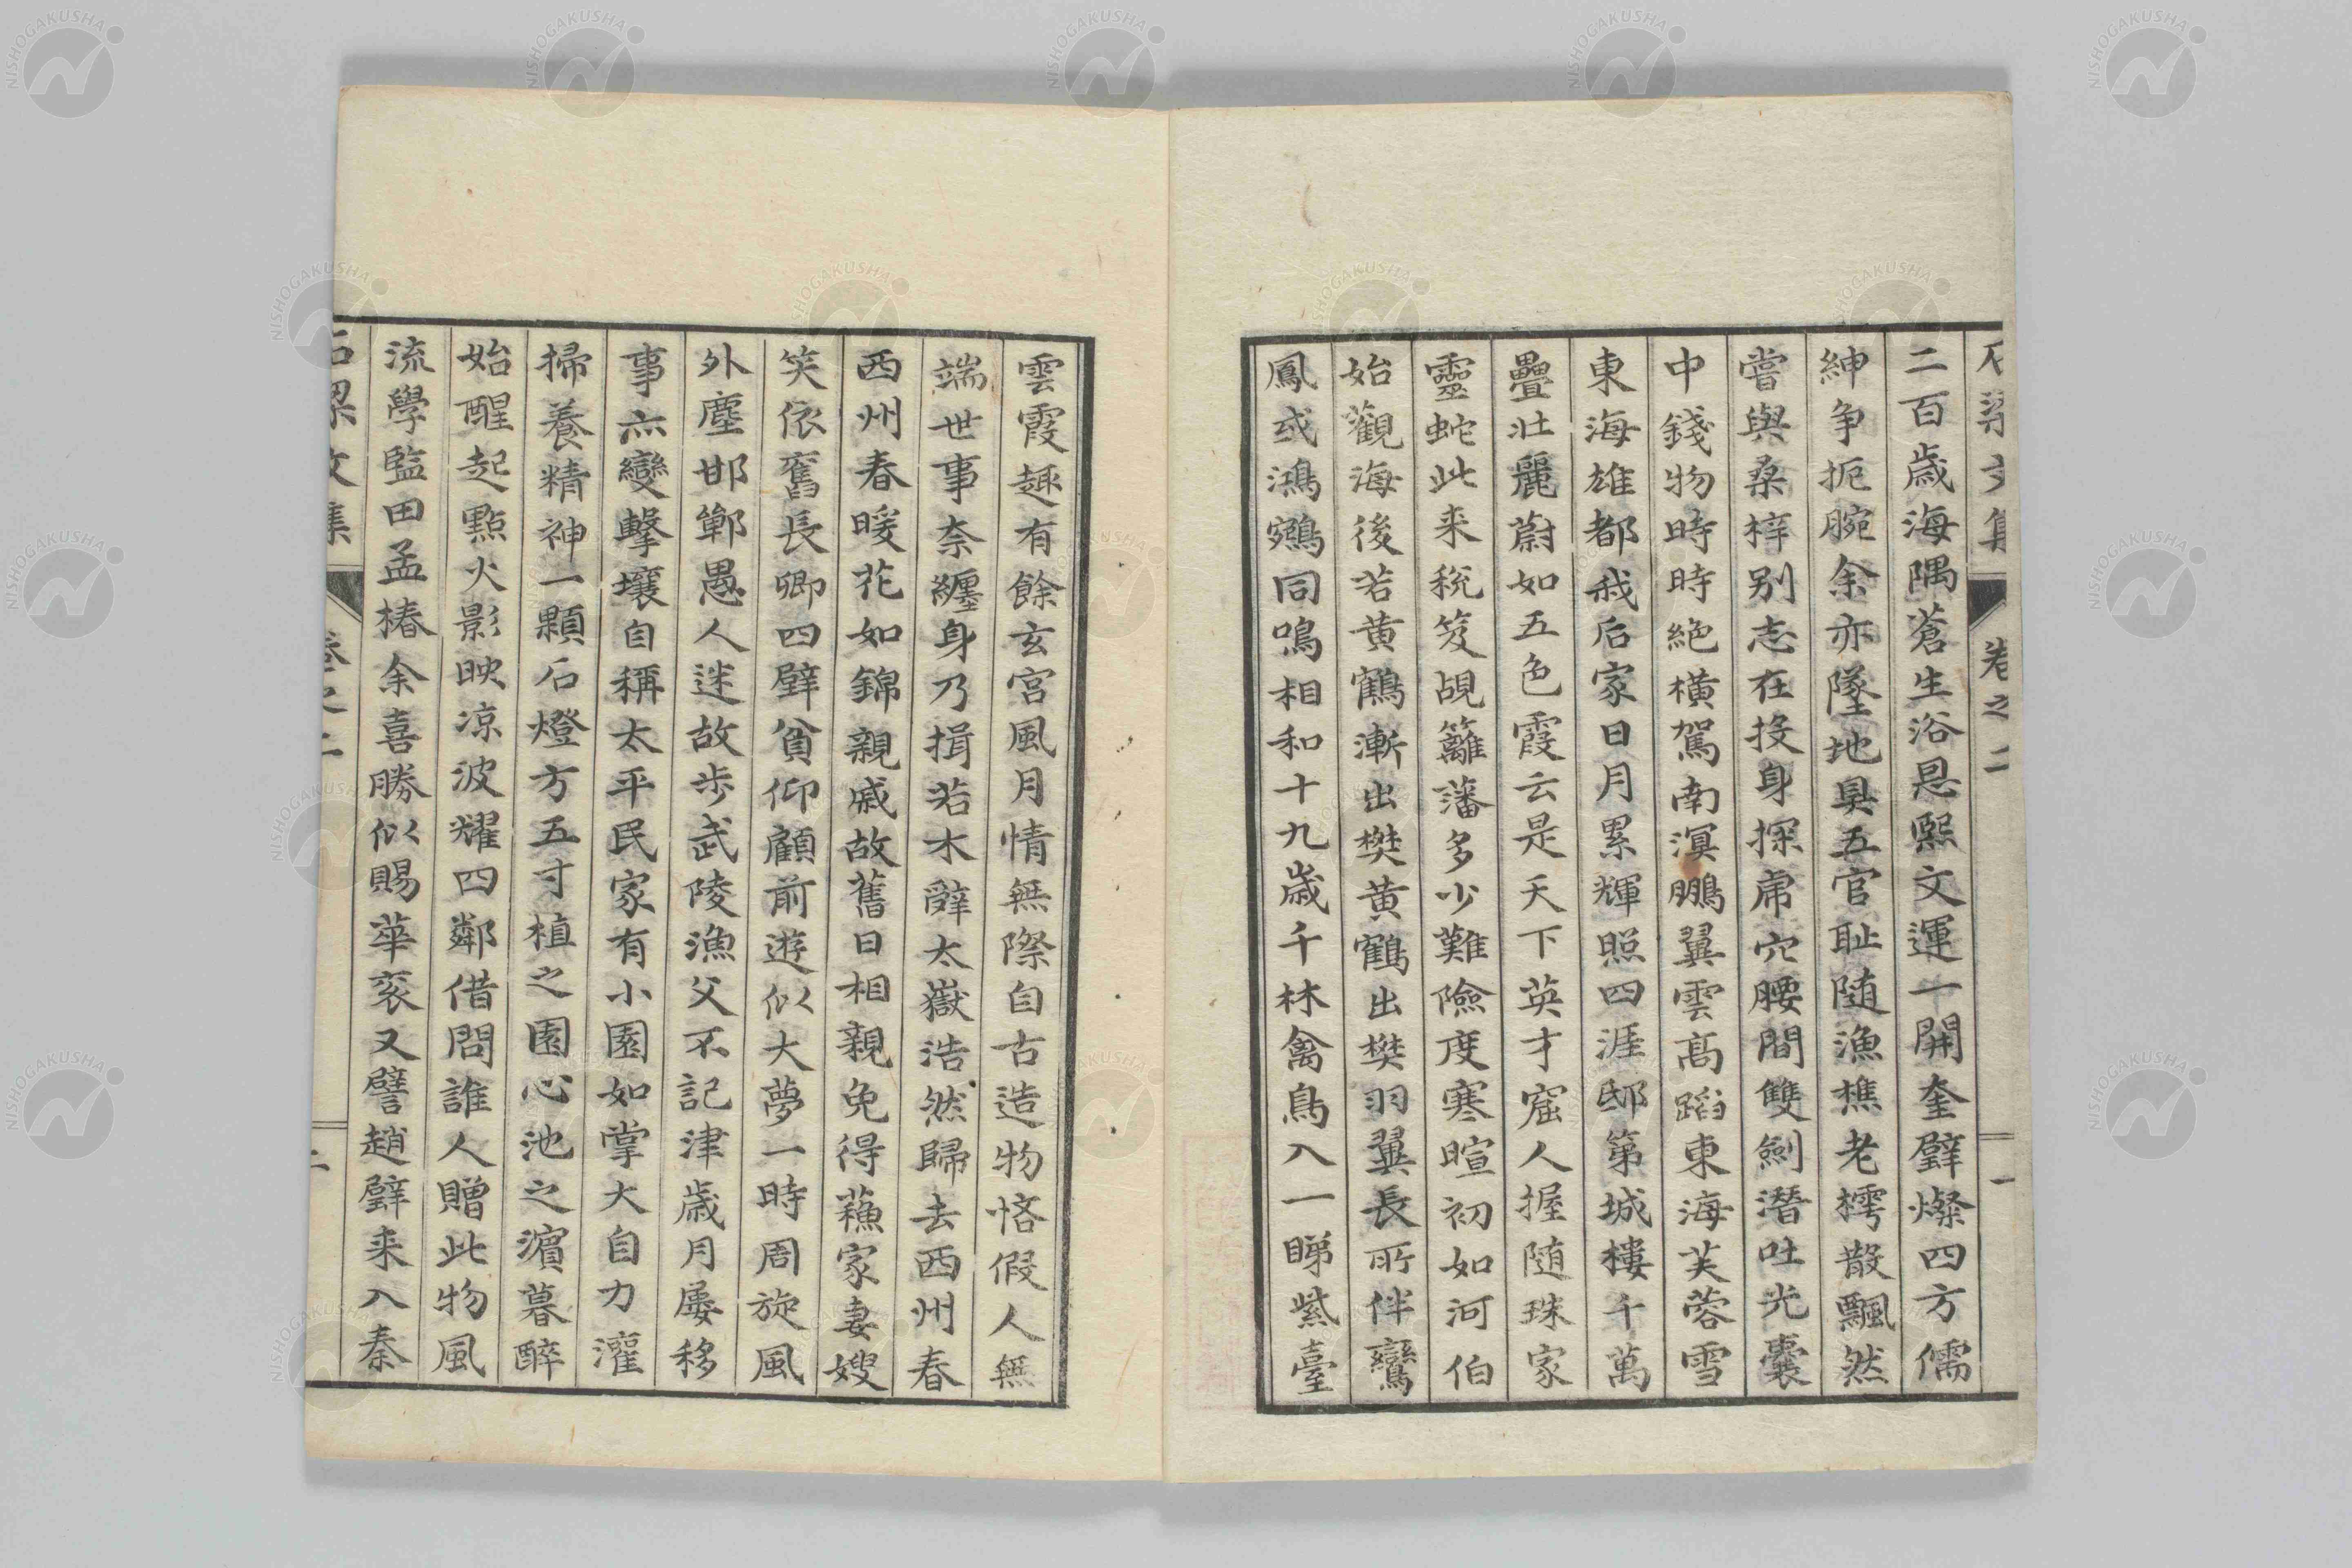 二百歳海隅蒼生浴恩熙文運一開奎璧燦四方儒
紳争扼腕余亦墜地具五官耻随漁樵老樗散飄然
嘗與桑梓別志在投身探虎穴腰間雙劍潜吐光嚢
中錢物時時絶横駕南溟鵬翼雲高蹈東海芙蓉雪
東海雄都我后家日月累輝照四涯邸第城樓千萬
疊壮麗蔚如五色霞云是天下英才窟人握随珠家
靈蛇此来税笈覘籬藩多少難険度寒暄初如河伯
始觀海後若黄鶴漸出樊黄鶴出樊羽翼長所伴鸞
鳳或鴻鵷同鳴相和十九歳千林禽鳥入一睇紫臺
雲霞趣有餘玄宮風月情無際自古造物悋假人無
端世事奈纏身乃揖若木辭太嶽浩然歸去西州春
西州春暖花如錦親戚故舊日相親免得蘓家妻嫂
笑依舊長卿四壁貧仰顧前遊似大夢一時周旋風
外塵邯鄲愚人迷故歩武陵漁父不記津歳月屡移
事亦變撃壌自稱太平民家有小園如掌大自力灌
掃養精神一顆石燈方五寸植之園心池之濵暮醉
始醒起點火影映凉波耀四鄰借問誰人贈此物風
流學監田孟椿余喜勝似賜華衮又譬趙璧来入秦
石梁文集
巻之二
一